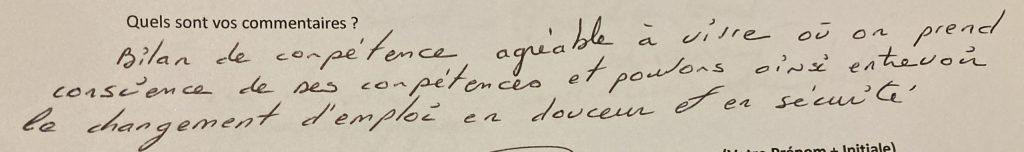 Quels sont vos commentaires ?
Bilan de compétence agréable à vivre où on prend
conscience de ses compétences et pouvons ainsi entrevoir
le changement d'emploi en douceur et en sécurité
Prénom + Initiale)